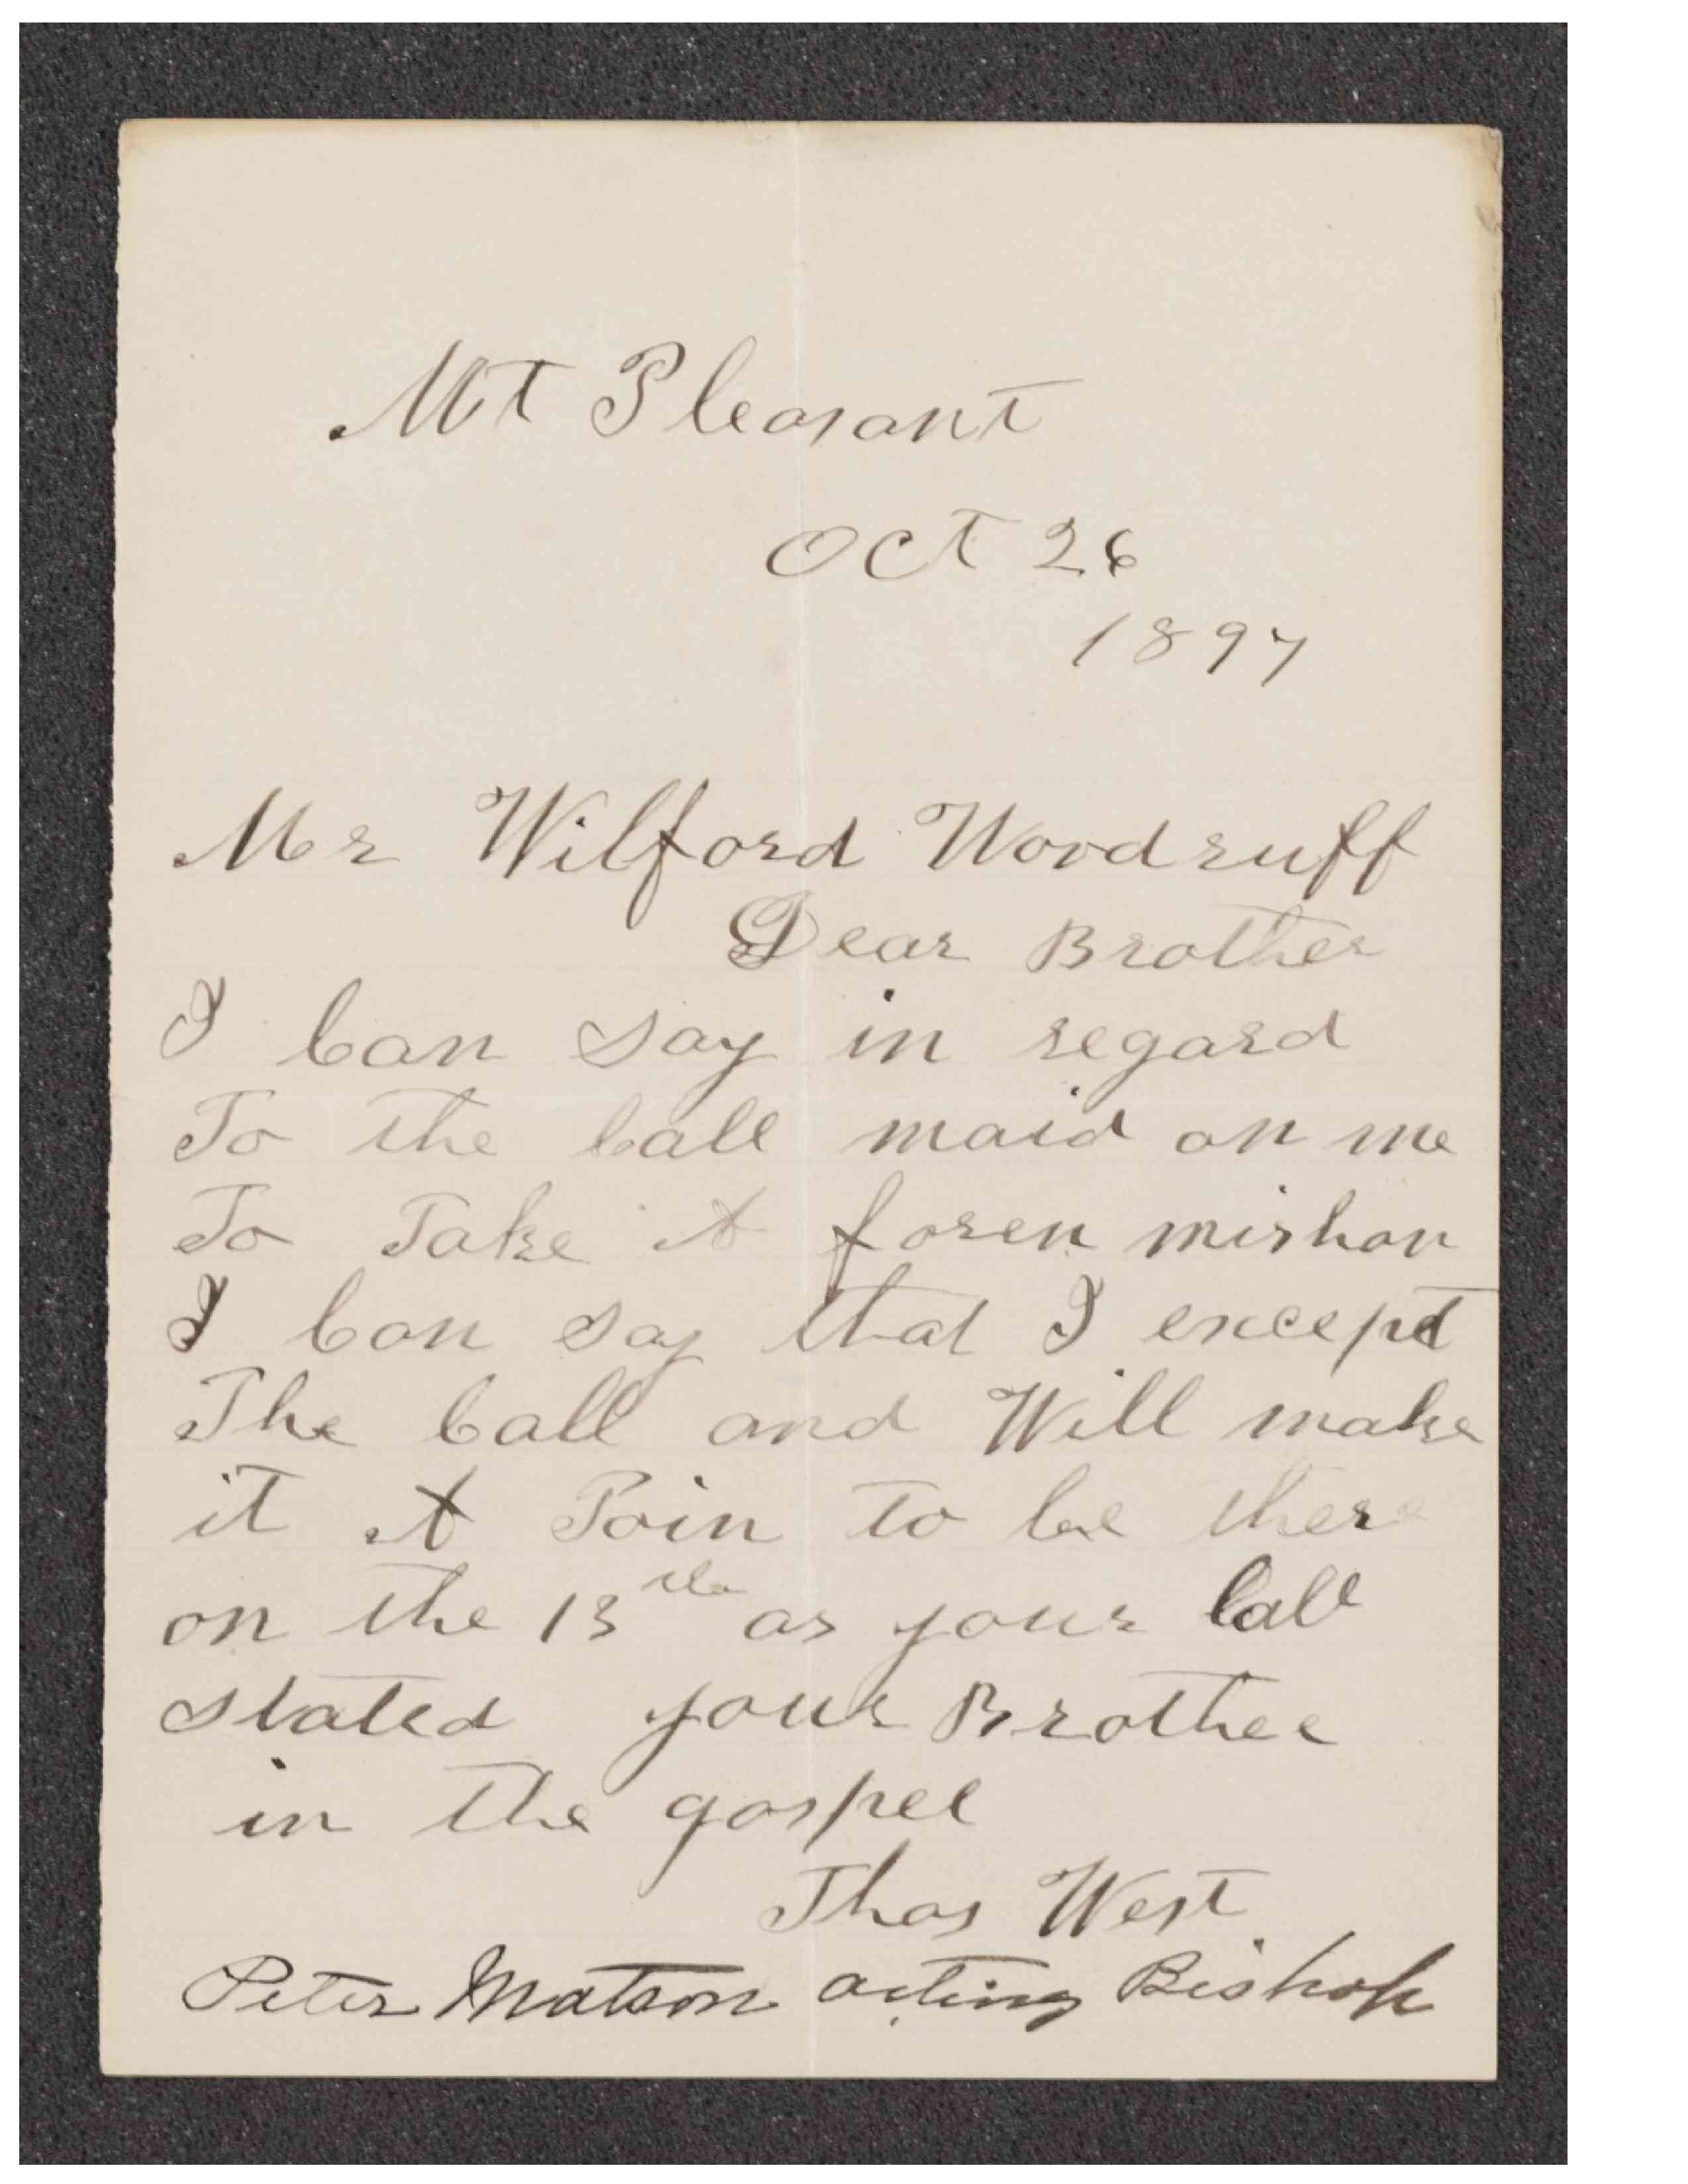 Mt Pleasant
Oct 26
1897
Mr Wilford Woodruff
Dear Brother
I Can say in regard
To the Call maid on me
To Take A foren mishon
I Can say that I except
The Call and Will make
it A Poin to be there
on the 13th as your Call
stated your Brother
in the gospel
Thos West
Peter Matson acting Bishop